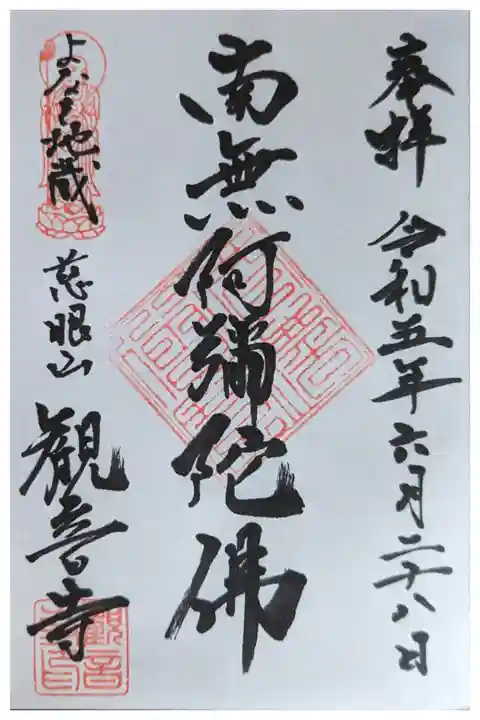 奉拝 令和五年六月二十八日
南無阿彌陀佛
よなき地蔵
慈眼山
観音寺